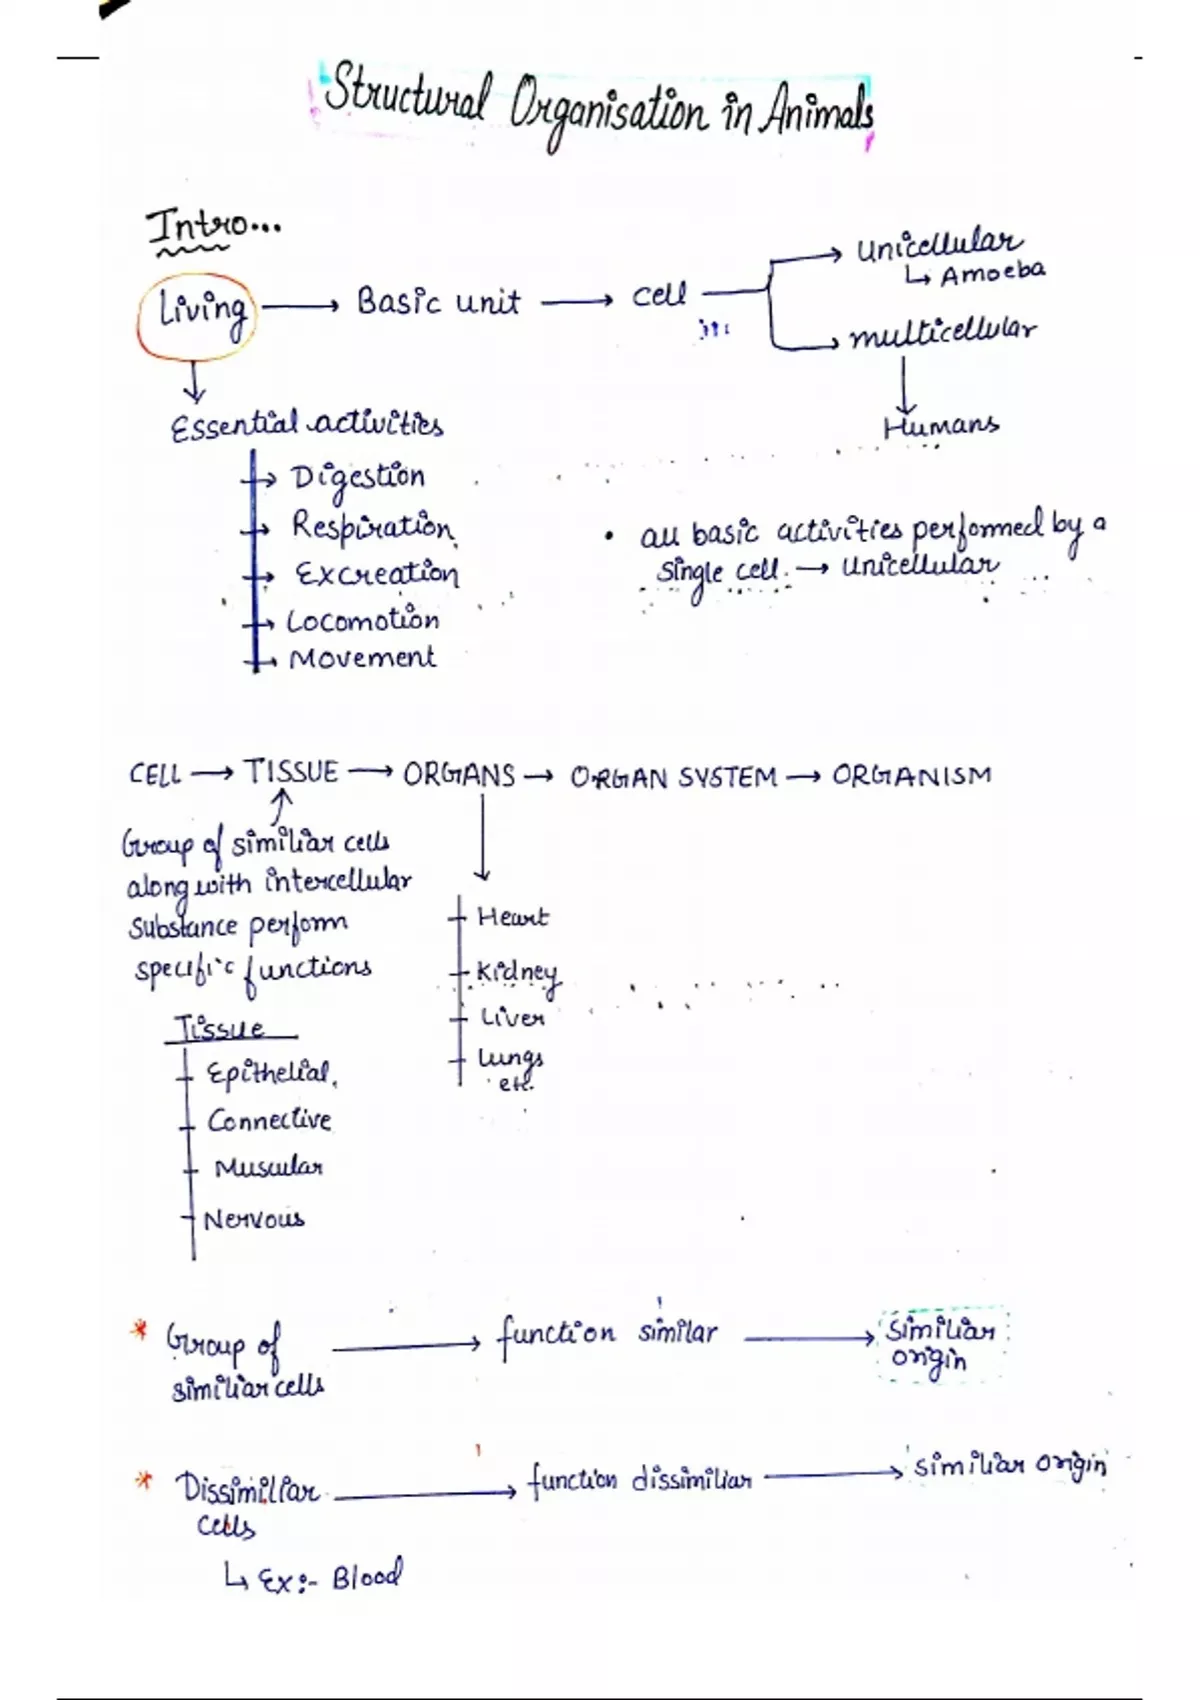 Structural Organisation in Animals
Intro...
Living → Basic unit → cell → unicellular
↳ Amoeba
→ multicellular
↓
Humans
↓
Essential activities
→ Digestion
→ Respiration
→ Excreation
→ Locomotion
→ Movement
• all basic activities performed by a
single cell. → unicellular
CELL → TISSUE → ORGANS → ORGAN SYSTEM → ORGANISM
Group of similiar cells
along with intercellular
substance perform
specific functions
Heart
Kidney
Liver
Lungs
etc.
Tissue
Epithelial
Connective
Muscular
Nervous
* Group of → function similar → similiar
similiar cells
origin
* Dissimiliar → function dissimiliar → similiar origin
cells
↳ Ex:- Blood